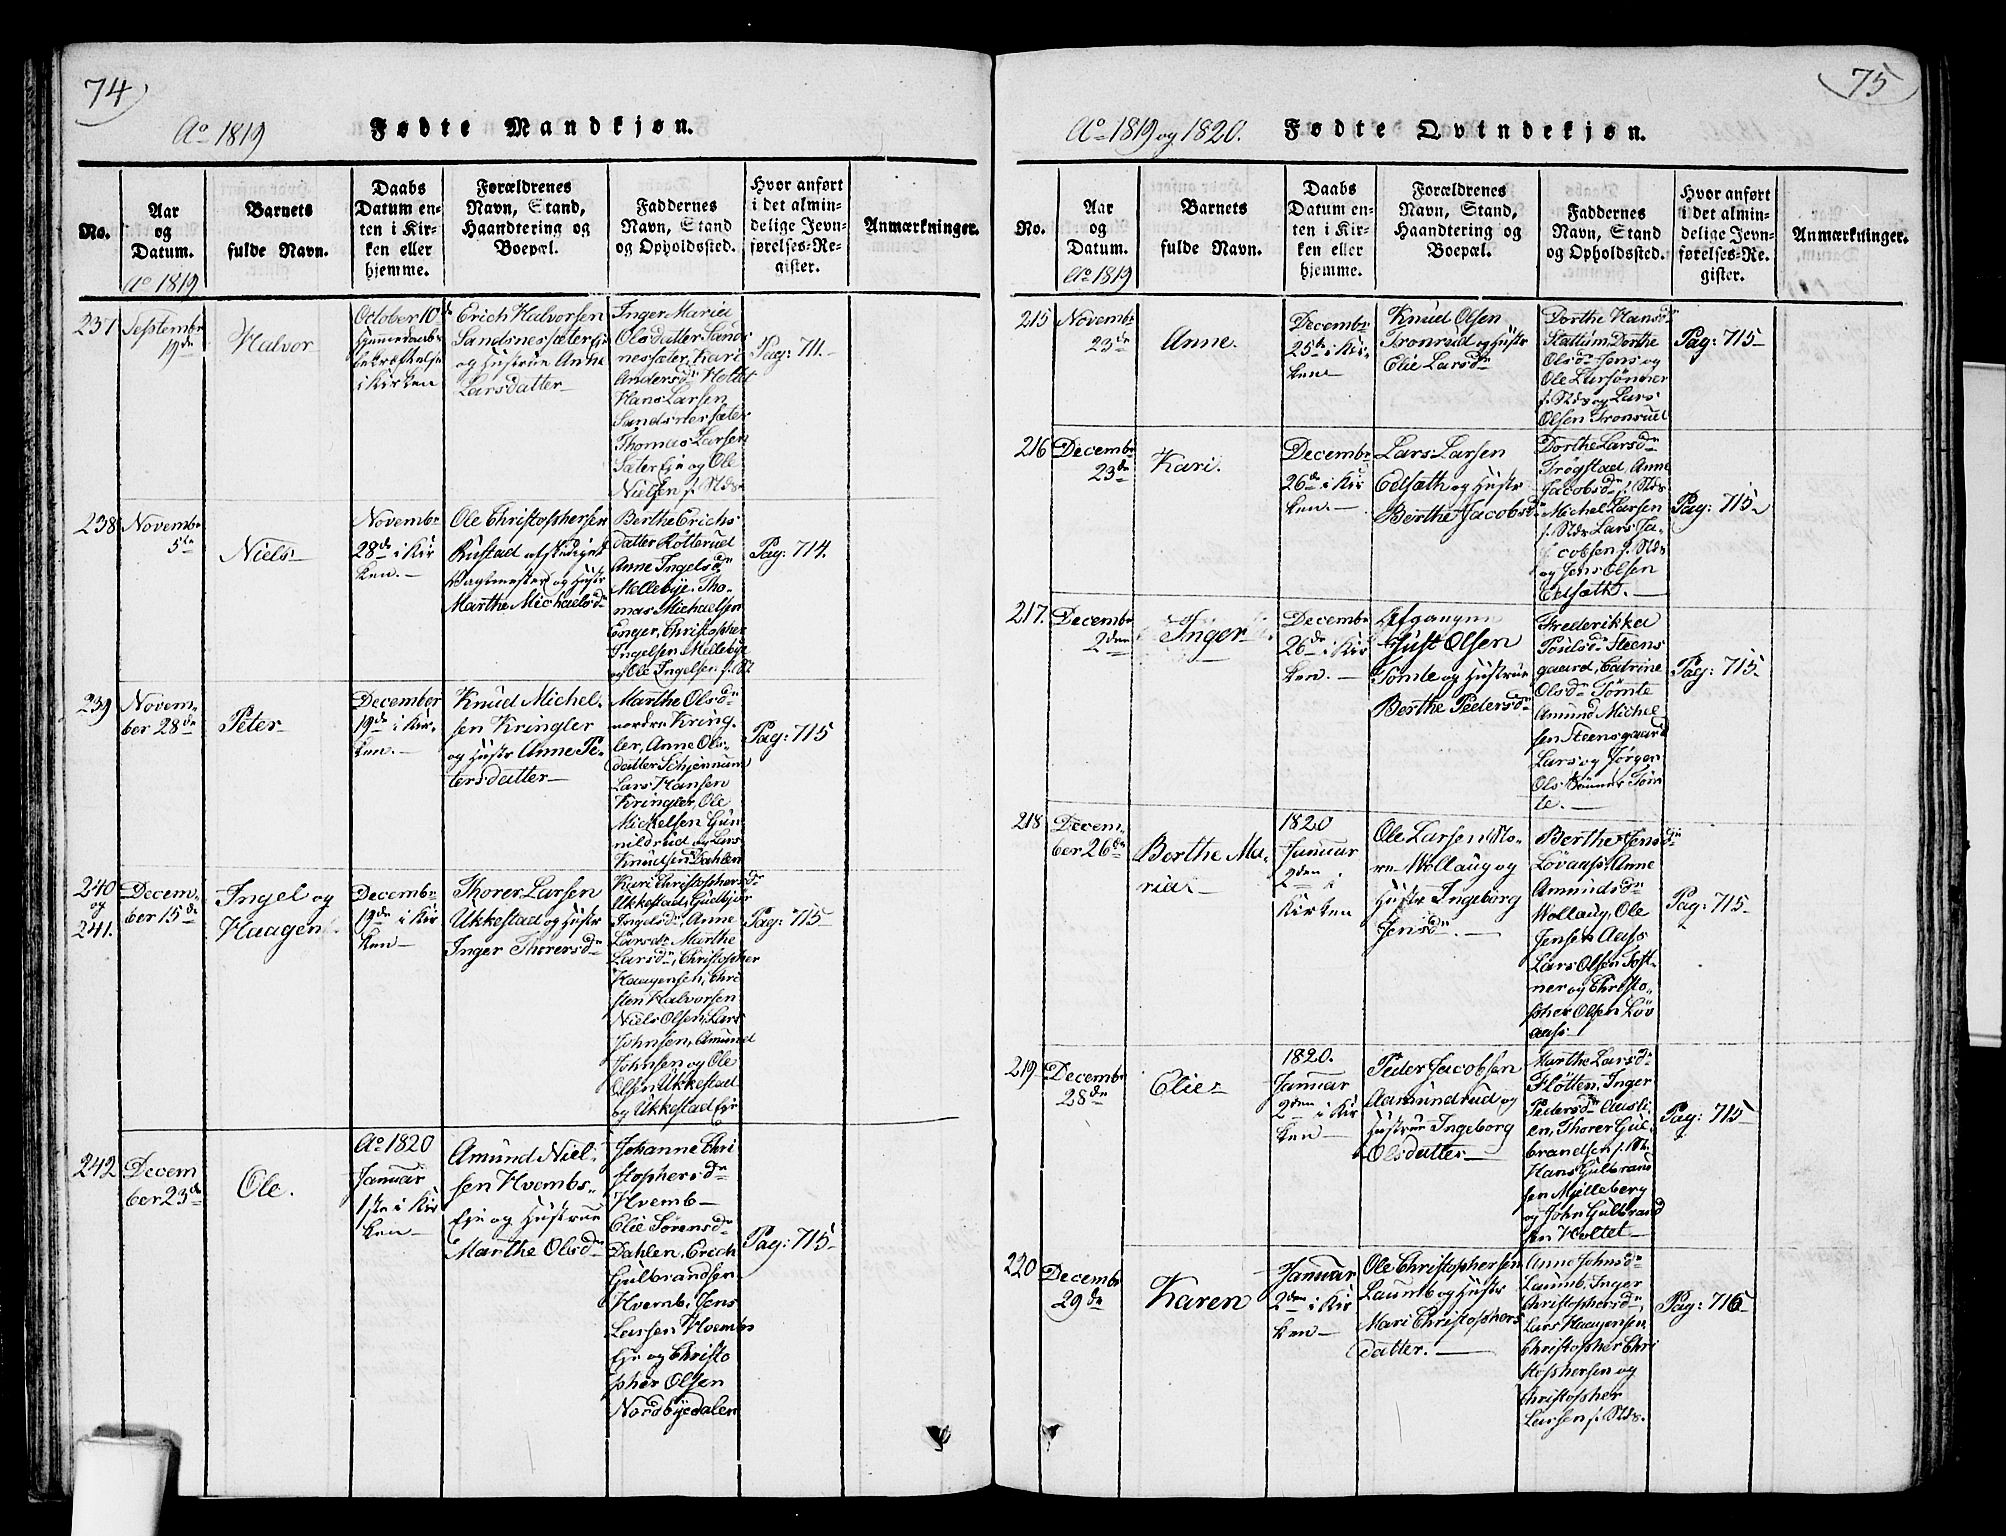 74
Ao 1819
Fødte Mandkjøn.
No.
Aar
og
Datum.
Ao 1819
Barnets
fulde Navn.
Daabs
Datum en-
ten i Kir-
ken eller
hjemme.
Forældrenes
Navn, Stand,
Haandtering og
Boepæl.
Faddernes
Navn, Stand
og Opholdssted.
Hvor anført
i det almin-
delige Jevn-
førelses-Re-
gister.
Anmærkninger.
237
Septembr
19de
Halvor
October 10
i Kirken
Erich Halvorsen
Sandsnessæter Eje
og Hustrue Anne
Larsdatter
Inger Maria
Olsdatter Sands
nessæter, Kari
Andersdr
Hans Larsen
Sandsnessæter
Thomas Larsen
Sæter Eje og Ole
Nielsen f. Stds
Pag: 711.
238
Novembr
5te
Niels
Novembr
28de i Kir
ken.
Ole Christophersen
Rustad afskediget
Vagtmester og Hustr
Marthe Michaelsdr
Berthe Erichs
datter Rotterud
Anne Ingelsdr
Mollebye, Tho-
mas Michaelsen
Enger, Christopher
Ingelsen Mellebye
og Ole Ingelsen f. St
Pag: 714.
239
Novem-
ber 28de
Peter
December
19de i Kir-
ken.
Knud Michel-
sen Kringler
og Hustr Anne Pe-
tersdatter
Marthe Olsdr
nordre Kring-
ler, Anne Ols-
datter Schjennum
Lars Hansen
Kringler, Ole
Mickelsen Gun
nildrud og Lars
Knudsen Dahlen
Pag: 715
240
og
241.
Decem-
ber 15de
Ingel og
Haagen
Decembr
19de i Kir
ken
Thorer Larsen
Ukkestad og Hustr
Inger Thorersdr
Kari Christophersdr
Ukkestad, Gudbjør
Ingelsdr, Anne
Larsdr, Marthe
Larsdr, Christopher
Haagensen, Chri
sten Halvorsen
Niels Olsen, Lars
Johnsen, Amund
Johnsen og Ole
Olsen Ukkestad
og Ukkestad Eje
Pag: 715
242
Decem
ber 23de
Ole.
Ao 1820
Januar
1ste i Kir
ken
Amund Niel-
sen Hvembs-
Eje og Hustrue
Marthe Olsdr
Johanne Chri
stophersdr
Hvemb
Elie Sørensdr
Dahlen, Erich
Gulbrandsen
Hvemb, Jens
Larsen Hvembs
Eje og Christo
pher Olsen
Nordbyedalen
Pag: 715
75
Ao 1819 og 1820.
Fødte Qvindekjøn.
No.
Aar
og
Datum.
Ao 1819
Barnets
fulde Navn.
Daabs
Datum en-
ten i Kir-
ken eller
hjemme.
Forældrenes
Navn, Stand,
Haandtering og
Boepæl.
Faddernes
Navn, Stand
og Opholdssted.
Hvor anført
i det almin-
delige Jevn-
førelses-Re-
gister.
Anmærkninger.
215
Novembr
23de
Anne.
Decembr
25de i Kir-
ken
Knud Olsen
Tronrud og Hustr
Elie Larsdr
Dorthe Hansdr
Stattum, Dorthe
Olsdr Jens og
Ole Larsønner
f. Stds og Lars
Olsen Tronrud
Pag: 715
216
Decembr
23de
Kari.
Decembr
26de i Kir
ken.
Lars Larsen
Edsæth og Hustr
Berthe Jacobsdr
Dorthe Larsdr
Trøgstad, Anne
Jacobsdr f. Stds
Michel Larsen
f. Stds Lars Ja-
cobsen f. Stds
og Jens Olsen
Edsæth.
Pag: 715
217.
Decembr
2den
Inger
Decembr
26de i Kir
ken.
Afgangne
Just Olsen
Tomte og Hustrue
Berthe Pedersdr
Frederikka
Poulsdr Steens
gaard, Catrine
Olsdr Tomte
Amund Michel
sen Steensgaard
Lars og Jørgen
Ols Sønner Tom
te.
Pag: 715
218
Decem-
ber 26de
Berthe Ma-
ria
1820
Januar
2den i
Kirken
Ole Larsen Sto-
re Wollaug og
Hustr Ingeborg
Jensdr.
Berthe Jensdr
Løvaas, Anne
Amundsdr
Wollaug, Ole
Jensen Aass
Lars Olsen Toft-
ner og Christo-
pher Olsen Løv
aass
Pag: 715
219
Decembr
28de
Elie
1820.
Januar
2den i Kir
ken
Peder Jacobsen
Aamundrud og
Hustrue Ingeborg
Olsdatter
Marthe Larsdr
Fløtten, Inger
Pedersdr Austli
en, Thorer Gul-
brandsen f. St.
Hans Gulbrand
sen Mjelleberg
og John Gulbrand
sen Holtet
Pag: 715
220
Decembr
29de
Karen
Januar
2den i Kir
ken
Ole Christophersen
Laumb og Hustr
Mari Christophers
datter.
Anne Johnsdr
Laumb, Inger
Christophersdr,
Lars Haagensen
Christopher Chri
stophersen og
Christopher
Larsen f. Stds.
Pag: 716